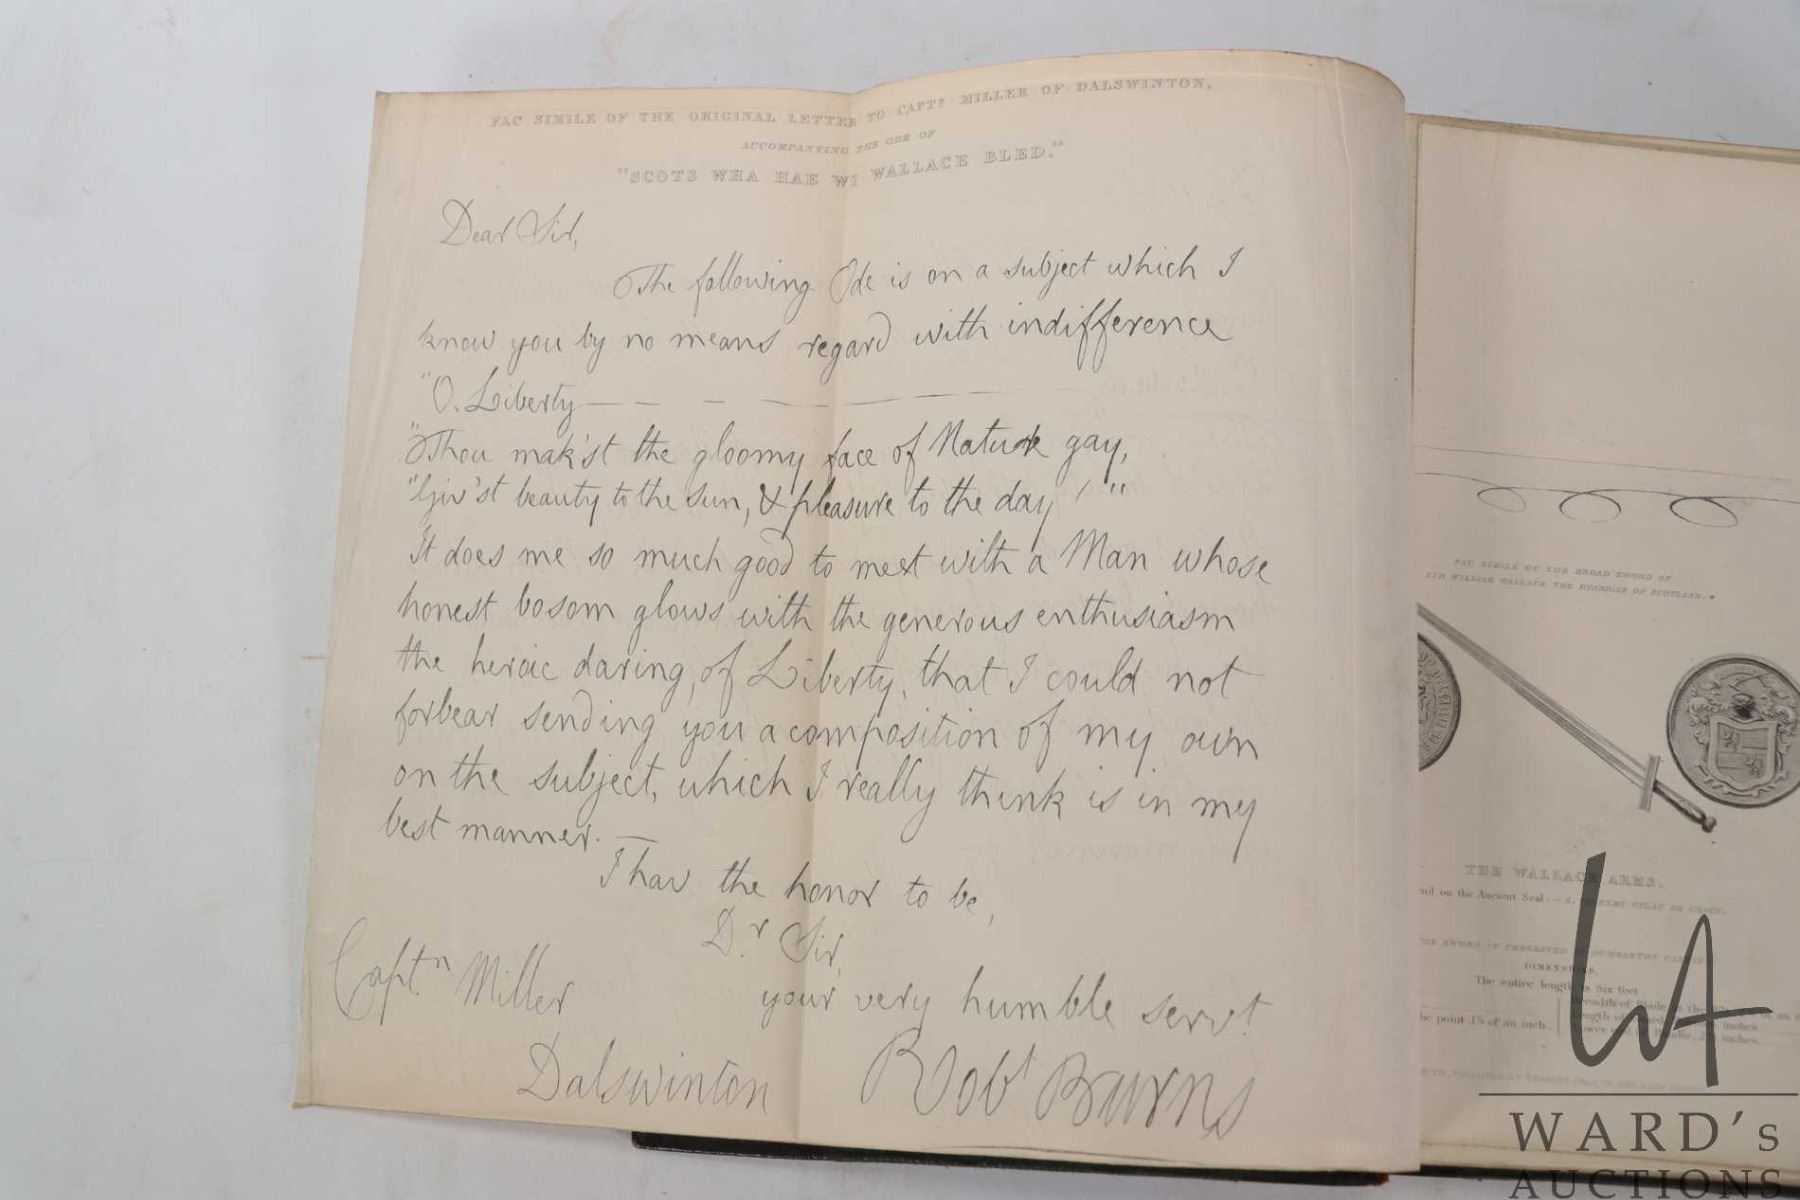 FAC SIMILE OF THE ORIGINAL LETTER TO CAPTN MILLER OF DALSWINTON,
ACCOMPANYING THE ODE OF
"SCOTS WHA HAE WI WALLACE BLED."
Dear Sir,
The following Ode is on a subject which I
know you by no means regard with indifference
"O. Liberty — — — — —
"Thou mak'st the gloomy face of Nature gay,
"Giv'st beauty to the sun, & pleasure to the day!"
It does me so much good to meet with a Man whose
honest bosom glows with the generous enthusiasm
the heroic daring, of Liberty, that I could not
forbear sending you a composition of my own
on the subject, which I really think is in my
best manner. —
I have the honor to be,
Dr Sir,
your very humble servt
Captn Miller
Dalswinton
Robt Burns
FAC SIMILE OF THE BROAD SWORD OF
SIR WILLIAM WALLACE THE GUARDIAN OF SCOTLAND.
THE WALLACE ARMS.
on the Ancient Seal
THE SWORD IS PRESERVED IN DUMBARTON CASTLE
DIMENSIONS.
The entire length is Six feet
the point 1½ of an inch.
WARD's
AUCTIONS